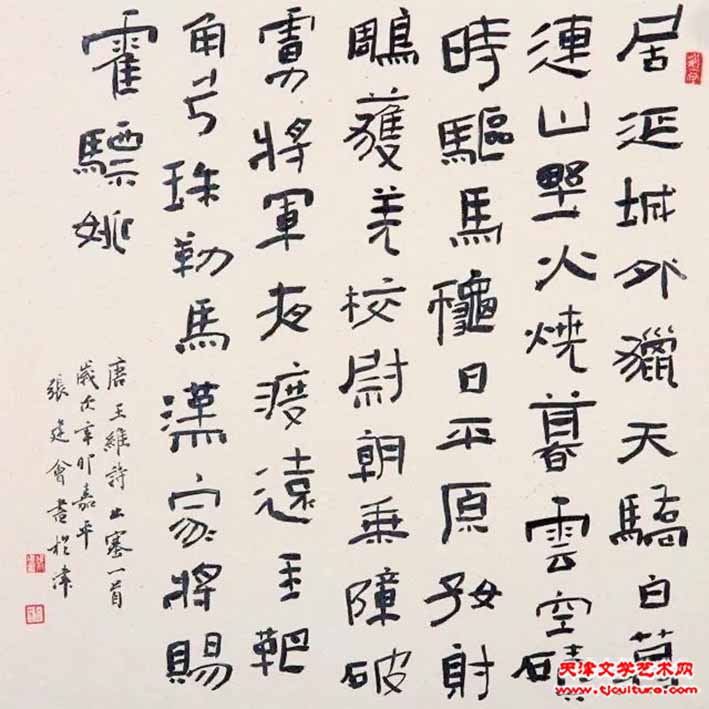 居延城外獵天驕白草
連山野火燒暮雲空磧
時驅馬穐日平原好射
鵰護羌校尉朝乘障破
虜將軍夜渡遼玉靶
角弓珠勒馬漢家將賜
霍驃姚
唐王維詩出塞一首
歲次辛卯嘉平
張建會書於津
天津文学艺术网
www.tjculture.com